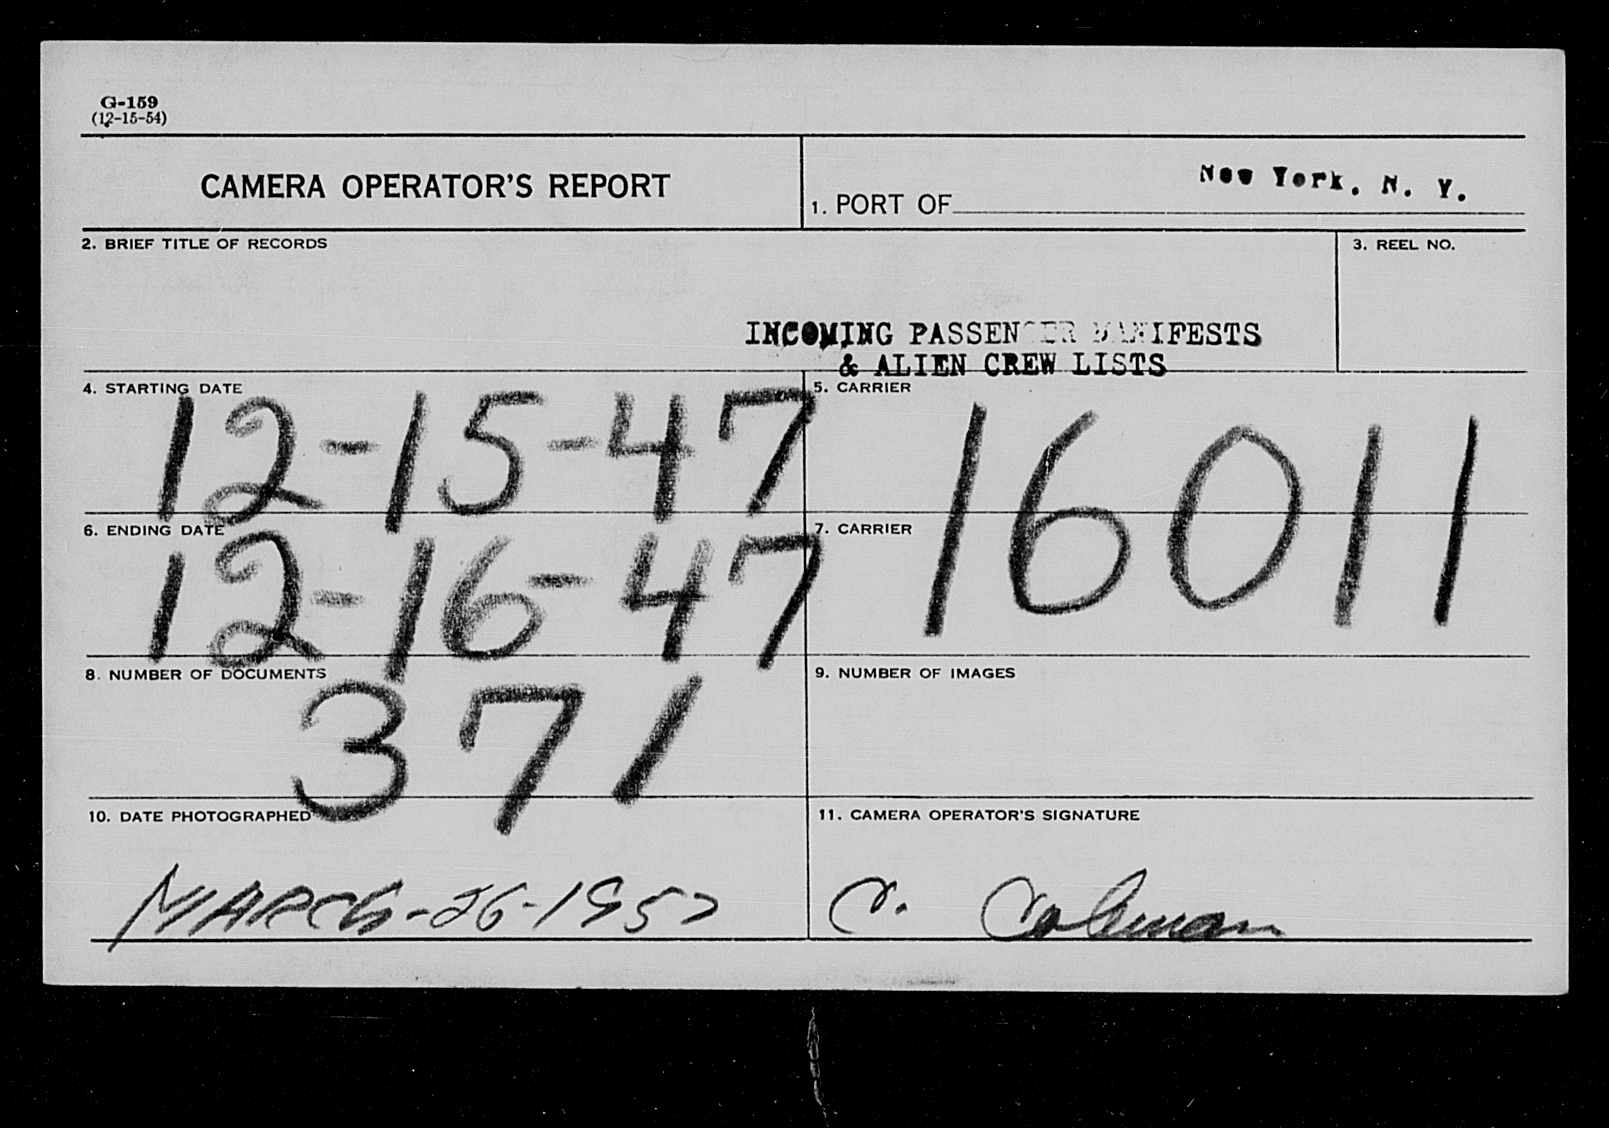 G-159
(12-15-54)
CAMERA OPERATOR'S REPORT
1. PORT OF New York, N. Y.
2. BRIEF TITLE OF RECORDS
3. REEL NO.
INCOMING PASSENGER MANIFESTS
& ALIEN CREW LISTS
4. STARTING DATE
12-15-47
5. CARRIER
16011
6. ENDING DATE
12-16-47
7. CARRIER
8. NUMBER OF DOCUMENTS
371
9. NUMBER OF IMAGES
10. DATE PHOTOGRAPHED
MARCh-26-1957
11. CAMERA OPERATOR'S SIGNATURE
C. Coleman